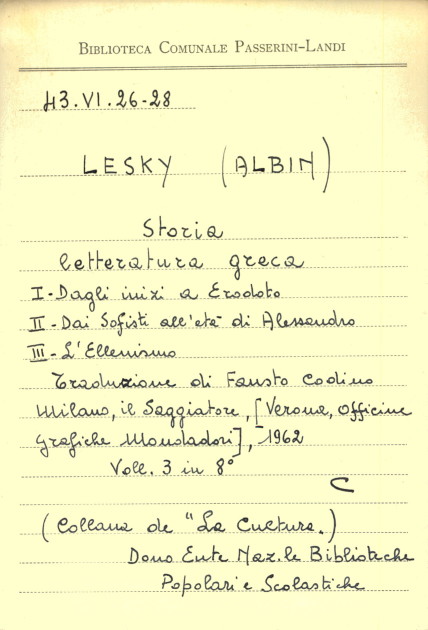 BIBLIOTECA COMUNALE PASSERINI-LANDI
43.VI.26-28
LESKY (ALBIN)
Storia
letteratura greca
I-Dagli inizi a Erodoto
II-Dai Sofisti all'età di Alessandro
III-L'Ellenismo
Traduzione di Fausto Codino
Milano, il Saggiatore, [Verona, Officine
grafiche Mondadori], 1962
Voll. 3 in 8°
C
(Collana de "La Cultura.)
Dono Ente Naz.le Biblioteche
Popolari e Scolastiche